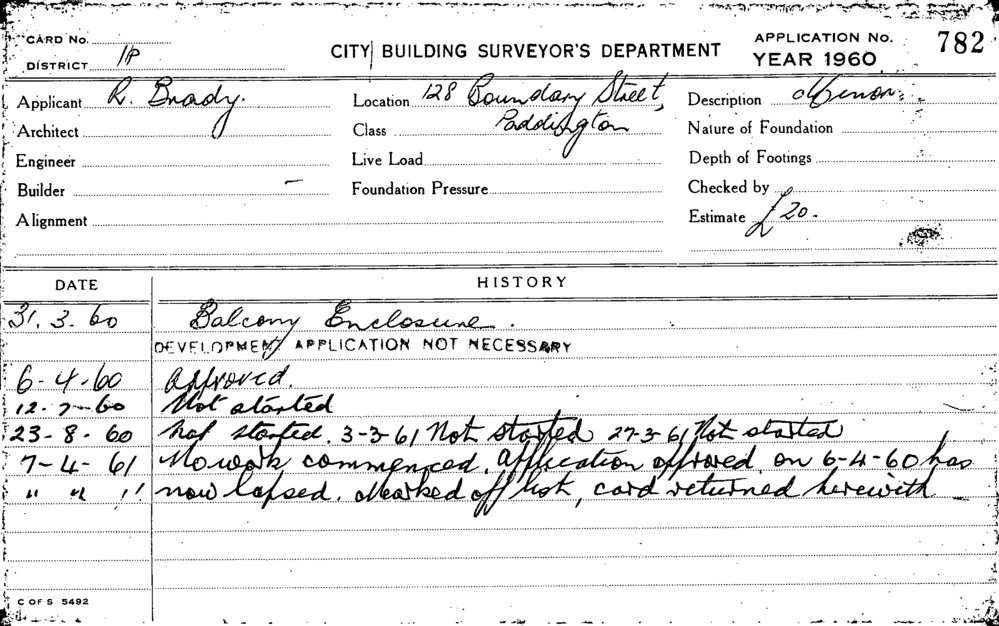 CARD No.
CITY BUILDING SURVEYOR'S DEPARTMENT
APPLICATION No. 782
DISTRICT
YEAR 1960
Applicant R. Brady.
Location 128 Boundary Street,
Description Minor
Architect
Class Paddington
Nature of Foundation
Engineer
Live Load
Depth of Footings
Builder –
Foundation Pressure
Checked by
Alignment
Estimate £20.
DATE HISTORY
31.3.60 Balcony Enclosure.
DEVELOPMENT APPLICATION NOT NECESSARY
6-4-60 Approved.
12-7-60 Not started
23-8-60 Not started. 3-3-61 Not started 27-3-61 Not started
7-4-61 No work commenced. Application approved on 6-4-60 has
" " " now lapsed. Marked off list, card returned herewith
C OF S 5492